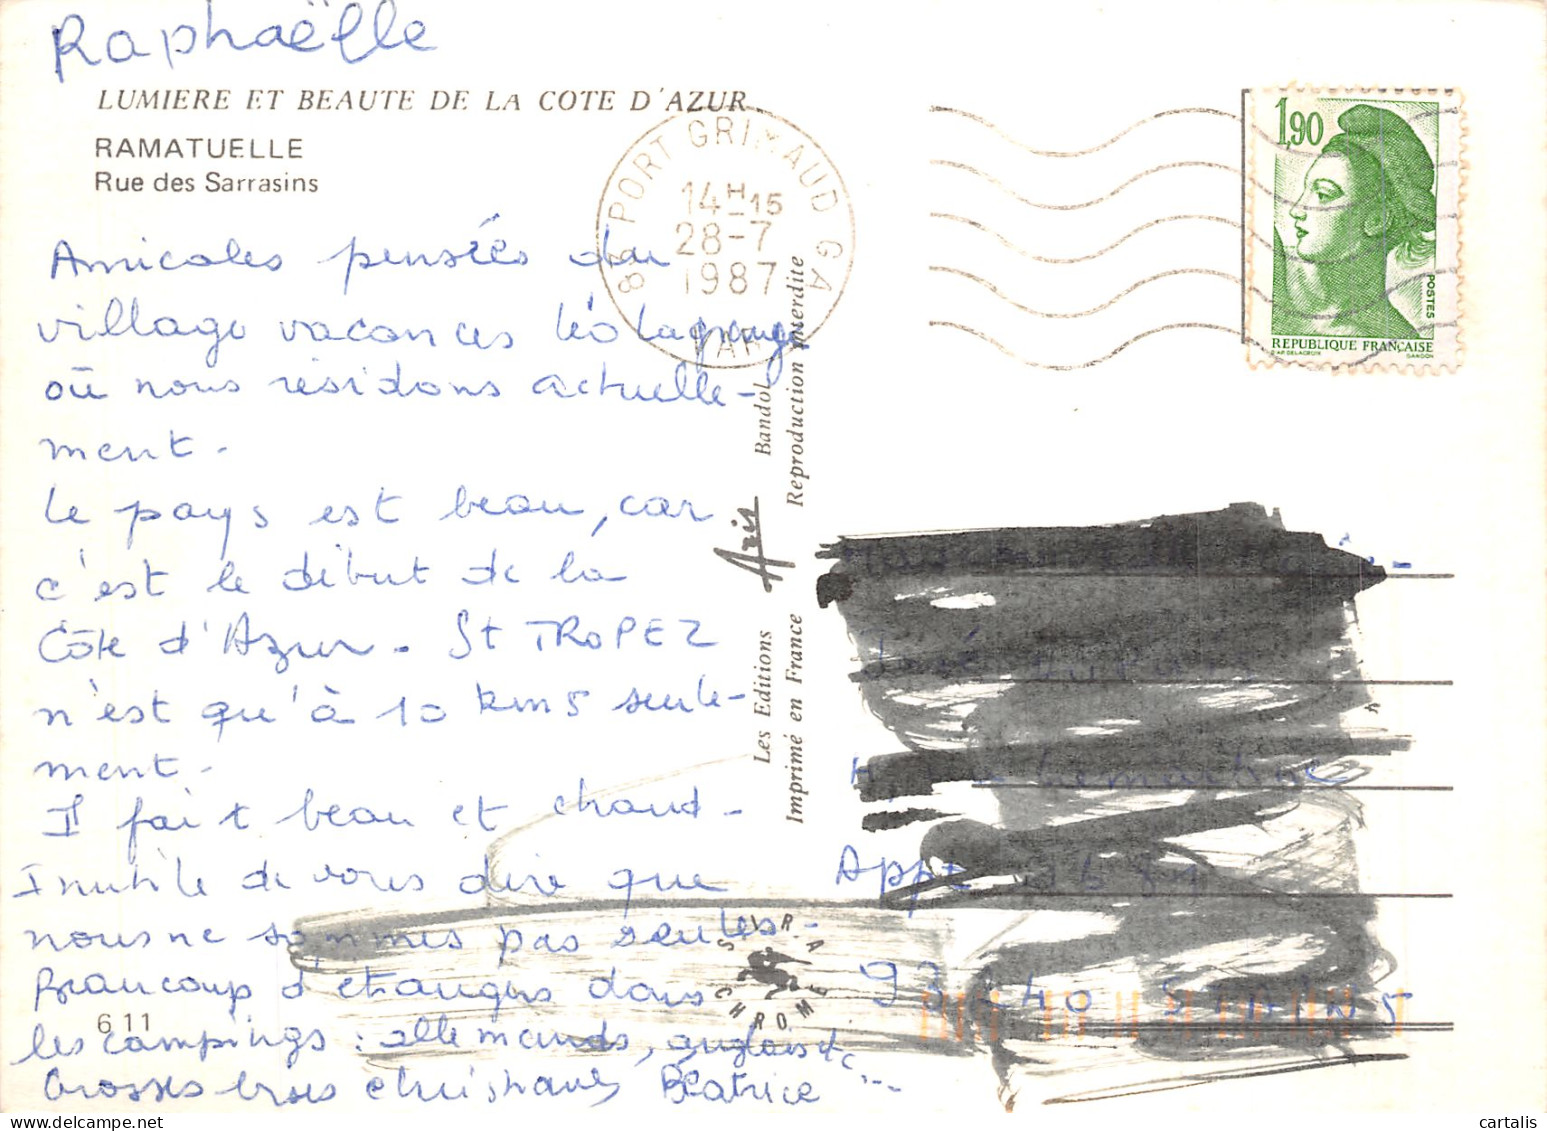 Raphaëlle
LUMIERE ET BEAUTE DE LA COTE D'AZUR
RAMATUELLE
Rue des Sarrasins
Amicales pensées du
village vacances Léo Lagrange
où nous résidons actuelle-
ment.
Le pays est beau, car
c'est le début de la
Côte d'Azur. St TROPEZ
n'est qu'à 10 kms seule-
ment.
Il fait beau et chaud.
Inutile de vous dire que
nous ne sommes pas seules.
Beaucoup d'étrangers dans
les campings : allemands, anglais etc...
Grosses bises Christiane, Béatrice
611
83 PORT GRIMAUD GA
14H-15
28-7
1987
VAR
Les Editions Aris Bandol
Imprimé en France Reproduction interdite
S.I.R.A.
CHROME
1,90
POSTES
REPUBLIQUE FRANÇAISE
D'AP. DELACROIX GANDON
Appt
cartalis